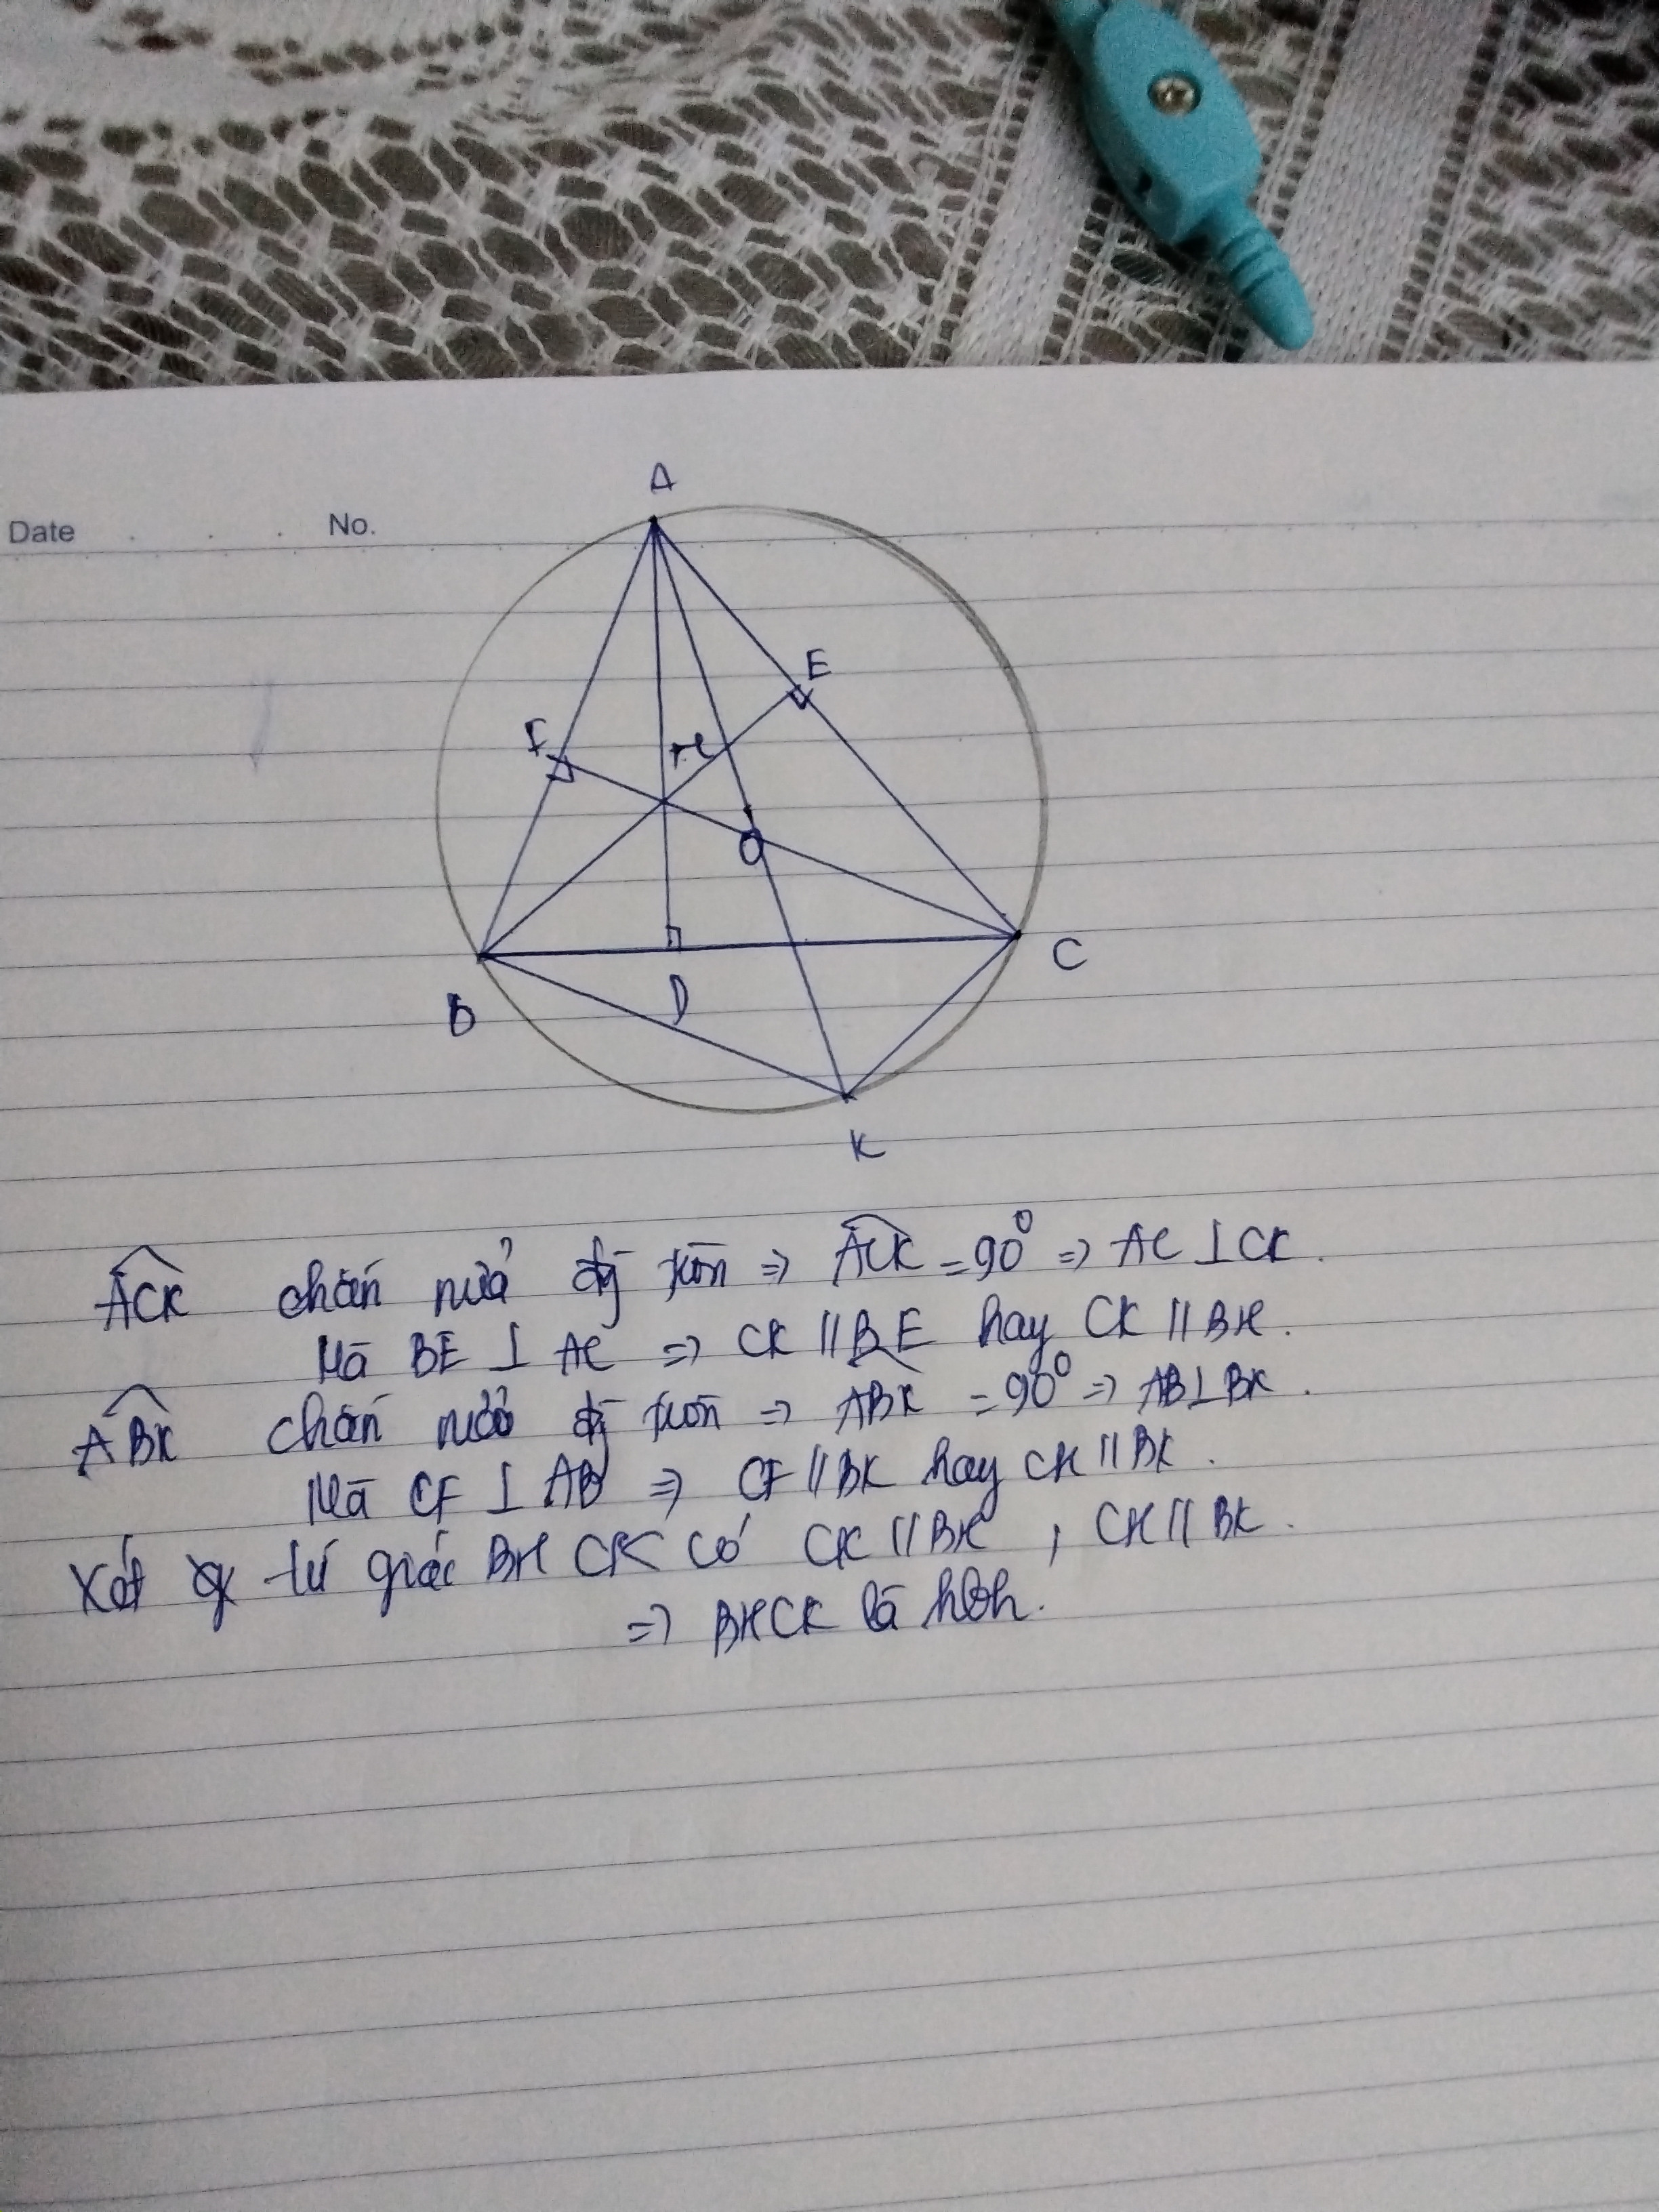 A
Date No.
E
F
H
O
C
B
D
K
ACK chắn nửa đg tròn => ACK = 90° => AC ⊥ CK.
Mà BE ⊥ AC => CK // BE hay CK // BH.
ABK chắn nửa đg tròn => ABK = 90° => AB ⊥ BK.
Mà CF ⊥ AB => CF // BK hay CH // BK.
Xét tứ giác BHCK có CK // BH, CH // BK.
=> BHCK là hbh.